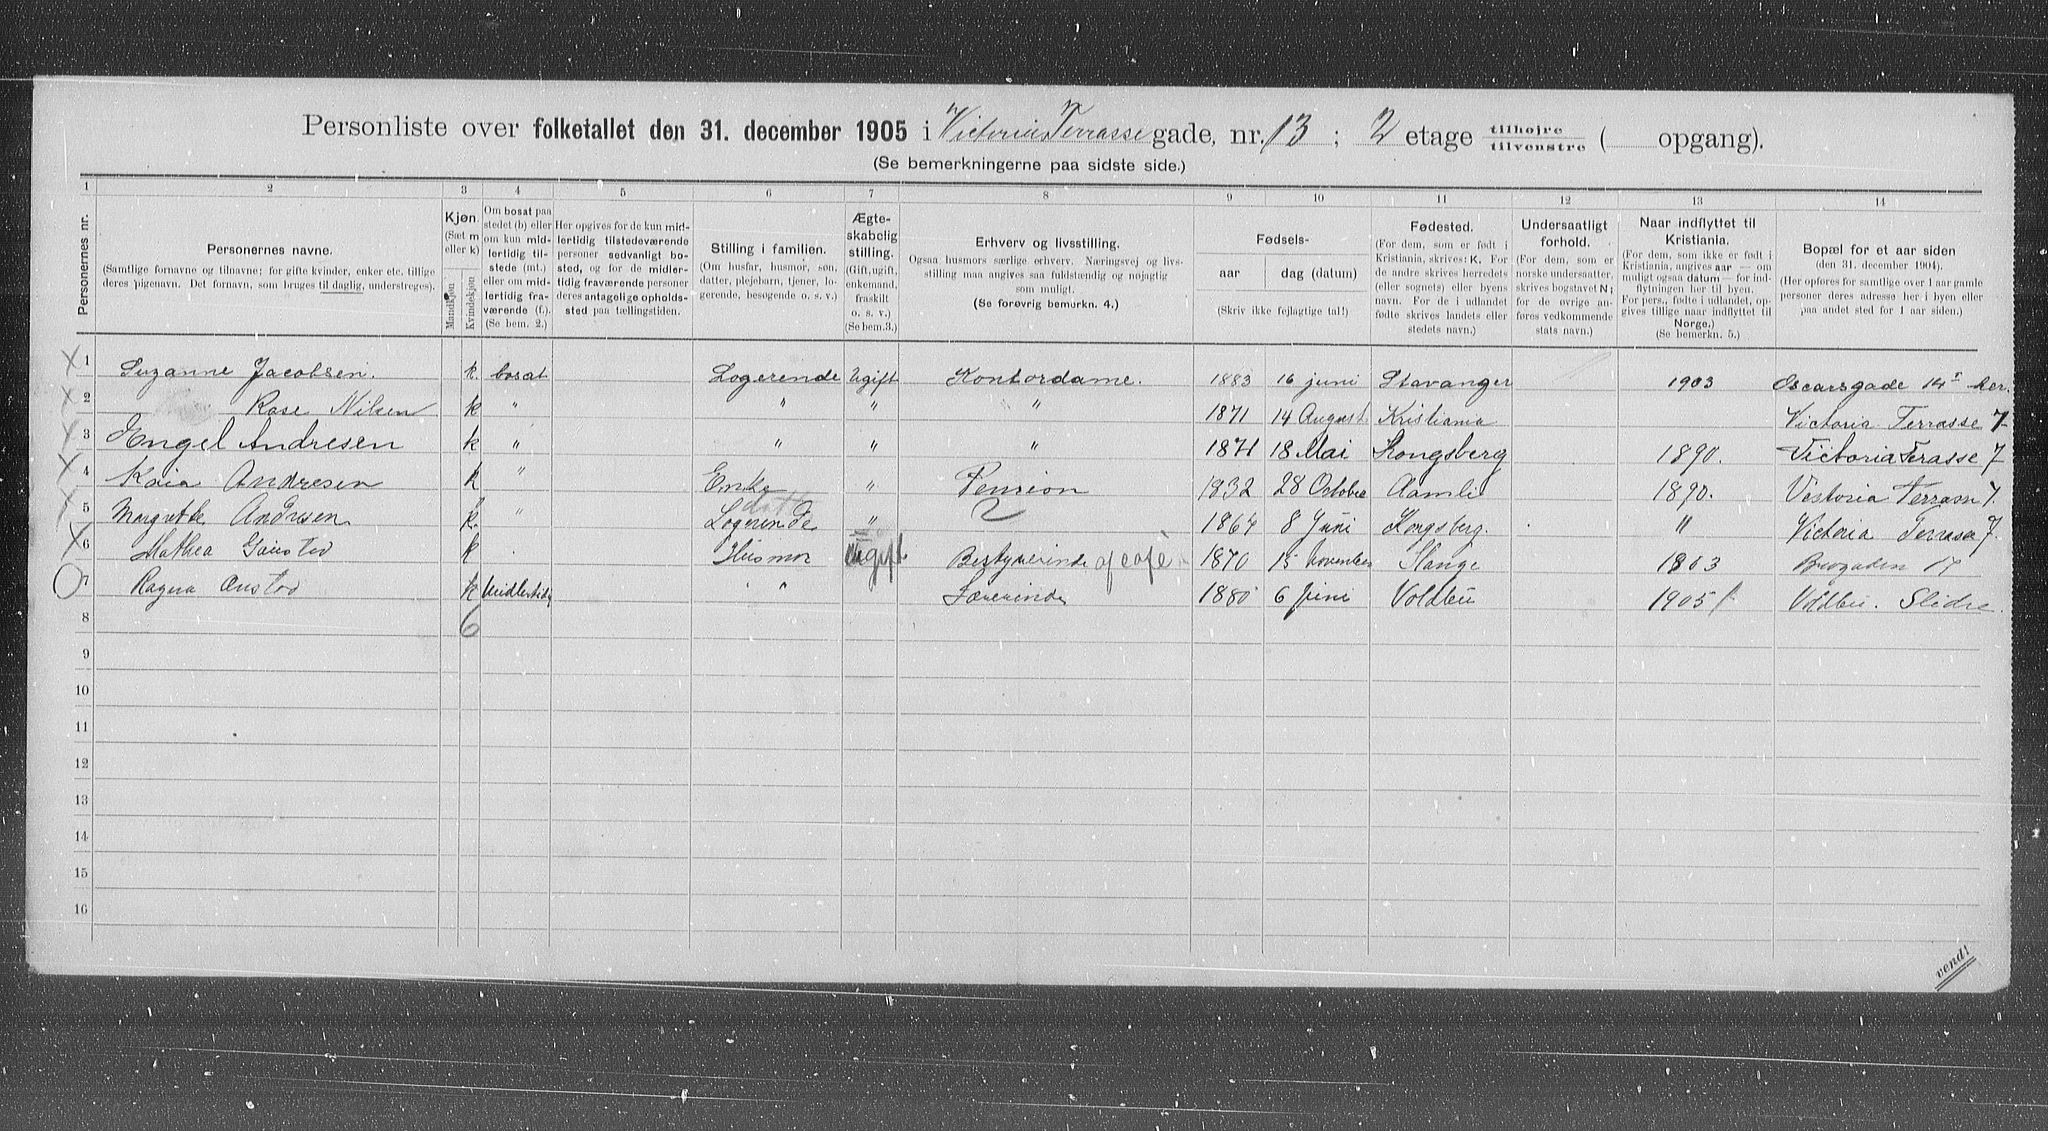 Personliste over folketallet den 31. december 1905 i Victoria Terrasse gade, nr. 13 ; 2 etage tilhøjre tilvenstre ( opgang).
(Se bemerkningerne paa sidste side.)
1 2 3 4 5 6 7 8 9 10 11 12 13 14
Personernes nr.
Personernes navne.
(Samtlige fornavne og tilnavne; for gifte kvinder, enker etc. tillige deres pigenavn. Det fornavn, som bruges til daglig, understreges).
Kjøn.
(Sæt m eller k)
Mandkjøn
Kvindekjøn
Om bosat paa stedet (b) eller om kun midlertidig tilstede (mt.) eller om midlertidig fraværende (f.). (Se bem. 2.)
Her opgives for de kun midlertidig tilstedeværende personer sedvanligt bosted, og for de midlertidig fraværende personer deres antagelige opholdssted paa tællingstiden.
Stilling i familien.
(Om husfar, husmor, søn, datter, plejebarn, tjener, logerende, besøgende o. s. v.)
Ægteskabelig stilling.
(Gift, ugift, enkemand, fraskilt o. s. v.) (Se bem. 3.)
Erhverv og livsstilling.
Ogsaa husmors særlige erhverv. Næringsvej og livsstilling maa angives saa fuldstændig og nøjagtig som muligt.
(Se forøvrig bemerkn. 4.)
Fødsels-
aar dag (datum)
(Skriv ikke fejlagtige tal!)
Fødested.
(For dem, som er født i Kristiania, skrives: K. For de andre skrives herredets (eller sognets) eller byens navn. For de i udlandet fødte skrives landets eller stedets navn.)
Undersaatligt forhold.
(For dem, som er norske undersaatter, skrives bogstavet N; for de øvrige anføres vedkommende stats navn.)
Naar indflyttet til Kristiania.
(For dem, som ikke er født i Kristiania, angives aar — om muligt ogsaa datum — for indflytningen her til byen. For pers., fødte i udlandet, opgives tillige naar indflyttet til Norge.)
(Se bemerkn. 5.)
Bopæl for et aar siden
(den 31. december 1904).
(Her opføres for samtlige over 1 aar gamle personer deres adresse her i byen eller paa andet sted for 1 aar siden.)
1 Suzanne Jacobsen. k. bosat Logerende Ugift Kontordame. 1883 16 juni Stavanger 1903 Oscarsgade 14 I her.
2 Rose Nilsen k " " " " 1871 14 August Kristiania Victoria Terrasse 7
3 Engel Andresen k " " " " 1871 18 Mai Kongsberg 1890. Victoria Terasse 7
4 Kaia Andresen k " Enke " Pension 1832 28 October Aamli 1890. Victoria Terrasse 7.
5 Margrethe Andresen k. " Logerende datt " 1864 8 Juni Kongsberg. " Victoria Terrasse 7.
6 Mathea k Husmor Ugift Bestyrerinde af café 1870 15 november Slange 1903 17
7 Ragna k Midlertidig " " Lærerinde 1880 6 Juni Voldbu 1905 Voldbu. Slidre.
8 6
9
10
11
12
13
14
15
16
vend!